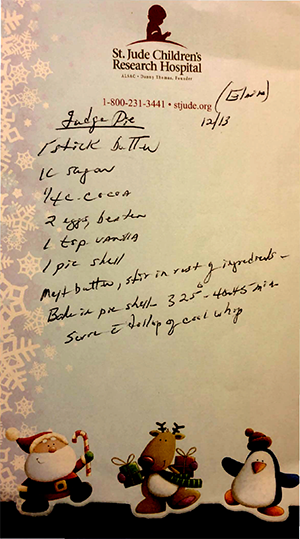 St. Jude Children's
Research Hospital
ALSAC • Danny Thomas, Founder
1-800-231-3441 • stjude.org
(Elaine)
Fudge Pie
12/13
1 stick butter
1 c sugar
1/4 c. cocoa
2 eggs, beaten
1 tsp vanilla
1 pie shell
Melt butter, stir in rest of ingredients -
Bake in pie shell - 325° - 40-45 min
Serve c̄ dollop of cool whip